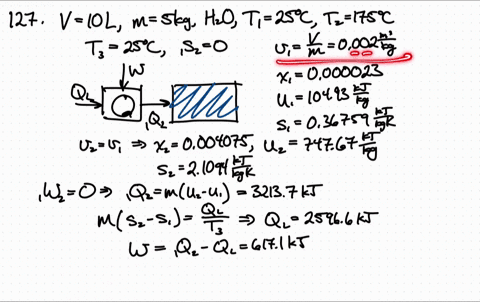 127. V=10L, m=5kg, H₂O, T₁=25°C, T₂=175°C
T₃=25°C, ₁S₂=0
v₁ = V/m = 0.002 m³/kg
W
x₁=0.000023
Q_L
₁Q₂
u₁=104.93 kJ/kg
s₁=0.36759 kJ/kgK
v₂=v₁ ⇒ x₂=0.004075, u₂=747.67 kJ/kg
s₂=2.1094 kJ/kgK
₁W₂=0 ⇒ ₁Q₂=m(u₂-u₁)=3213.7 kJ
m(s₂-s₁)=Q_L/T₃ ⇒ Q_L=2596.6 kJ
W = ₁Q₂-Q_L=617.1 kJ